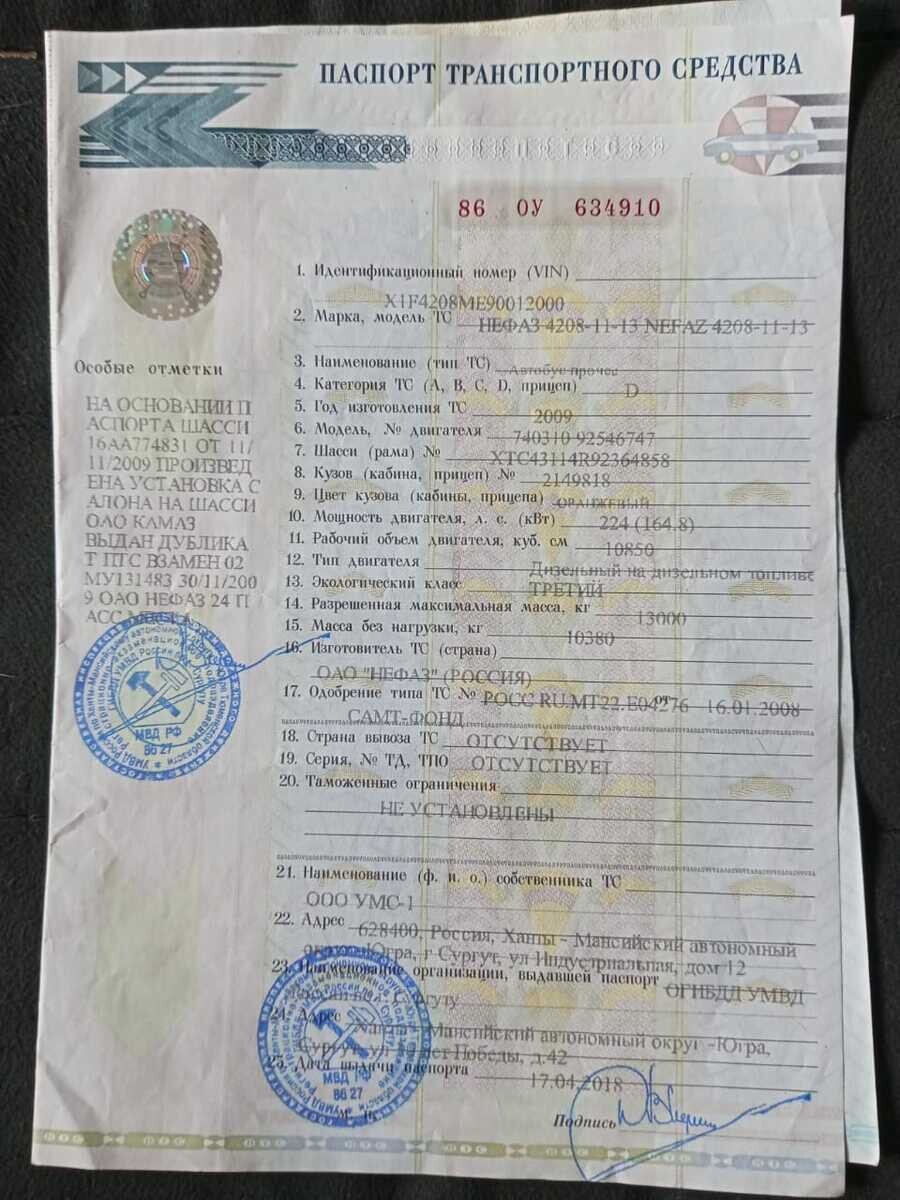 ПАСПОРТ ТРАНСПОРТНОГО СРЕДСТВА
86 ОУ 634910
1. Идентификационный номер (VIN)
X1F4208ME90012000
2. Марка, модель ТС НЕФАЗ 4208-11-13 NEFAZ 4208-11-13
3. Наименование (тип ТС) Автобус прочее
4. Категория ТС (А, В, С, D, прицеп) D
5. Год изготовления ТС 2009
6. Модель, № двигателя 740310 92546747
7. Шасси (рама) № XTC43114R92364858
8. Кузов (кабина, прицеп) № 2149818
9. Цвет кузова (кабины, прицепа) ОРАНЖЕВЫЙ
10. Мощность двигателя, л. с. (кВт) 224 (164.8)
11. Рабочий объем двигателя, куб. см 10850
12. Тип двигателя Дизельный на дизельном топливе
13. Экологический класс ТРЕТИЙ
14. Разрешенная максимальная масса, кг 13000
15. Масса без нагрузки, кг 10380
16. Изготовитель ТС (страна)
ОАО "НЕФАЗ" (РОССИЯ)
17. Одобрение типа ТС № РОСС RU.MT22.E04276 от 16.01.2008
САМТ-ФОНД
18. Страна вывоза ТС ОТСУТСТВУЕТ
19. Серия, № ТД, ТПО ОТСУТСТВУЕТ
20. Таможенные ограничения
НЕ УСТАНОВЛЕНЫ
21. Наименование (ф. и. о.) собственника ТС
ООО УМС-1
22. Адрес 628400, Россия, Ханты - Мансийский автономный
округ -Югра, г Сургут, ул Индустриальная, дом 12
23. Наименование организации, выдавшей паспорт ОГИБДД УМВД
Сургуту
24. Адрес Ханты - Мансийский автономный округ -Югра,
Сургут, ул Победы, д.42
25. Дата выдачи паспорта 17.04.2018
Подпись
Особые отметки
НА ОСНОВАНИИ П
АСПОРТА ШАССИ
16АА774831 ОТ 11/
11/2009 ПРОИЗВЕД
ЕНА УСТАНОВКА С
АЛОНА НА ШАССИ
ОАО КАМАЗ
ВЫДАН ДУБЛИКА
Т ПТС ВЗАМЕН 02
МУ131483 30/11/200
9 ОАО НЕФАЗ 24 П
АСС
МВД РФ
86 27
МВД РФ
86 27